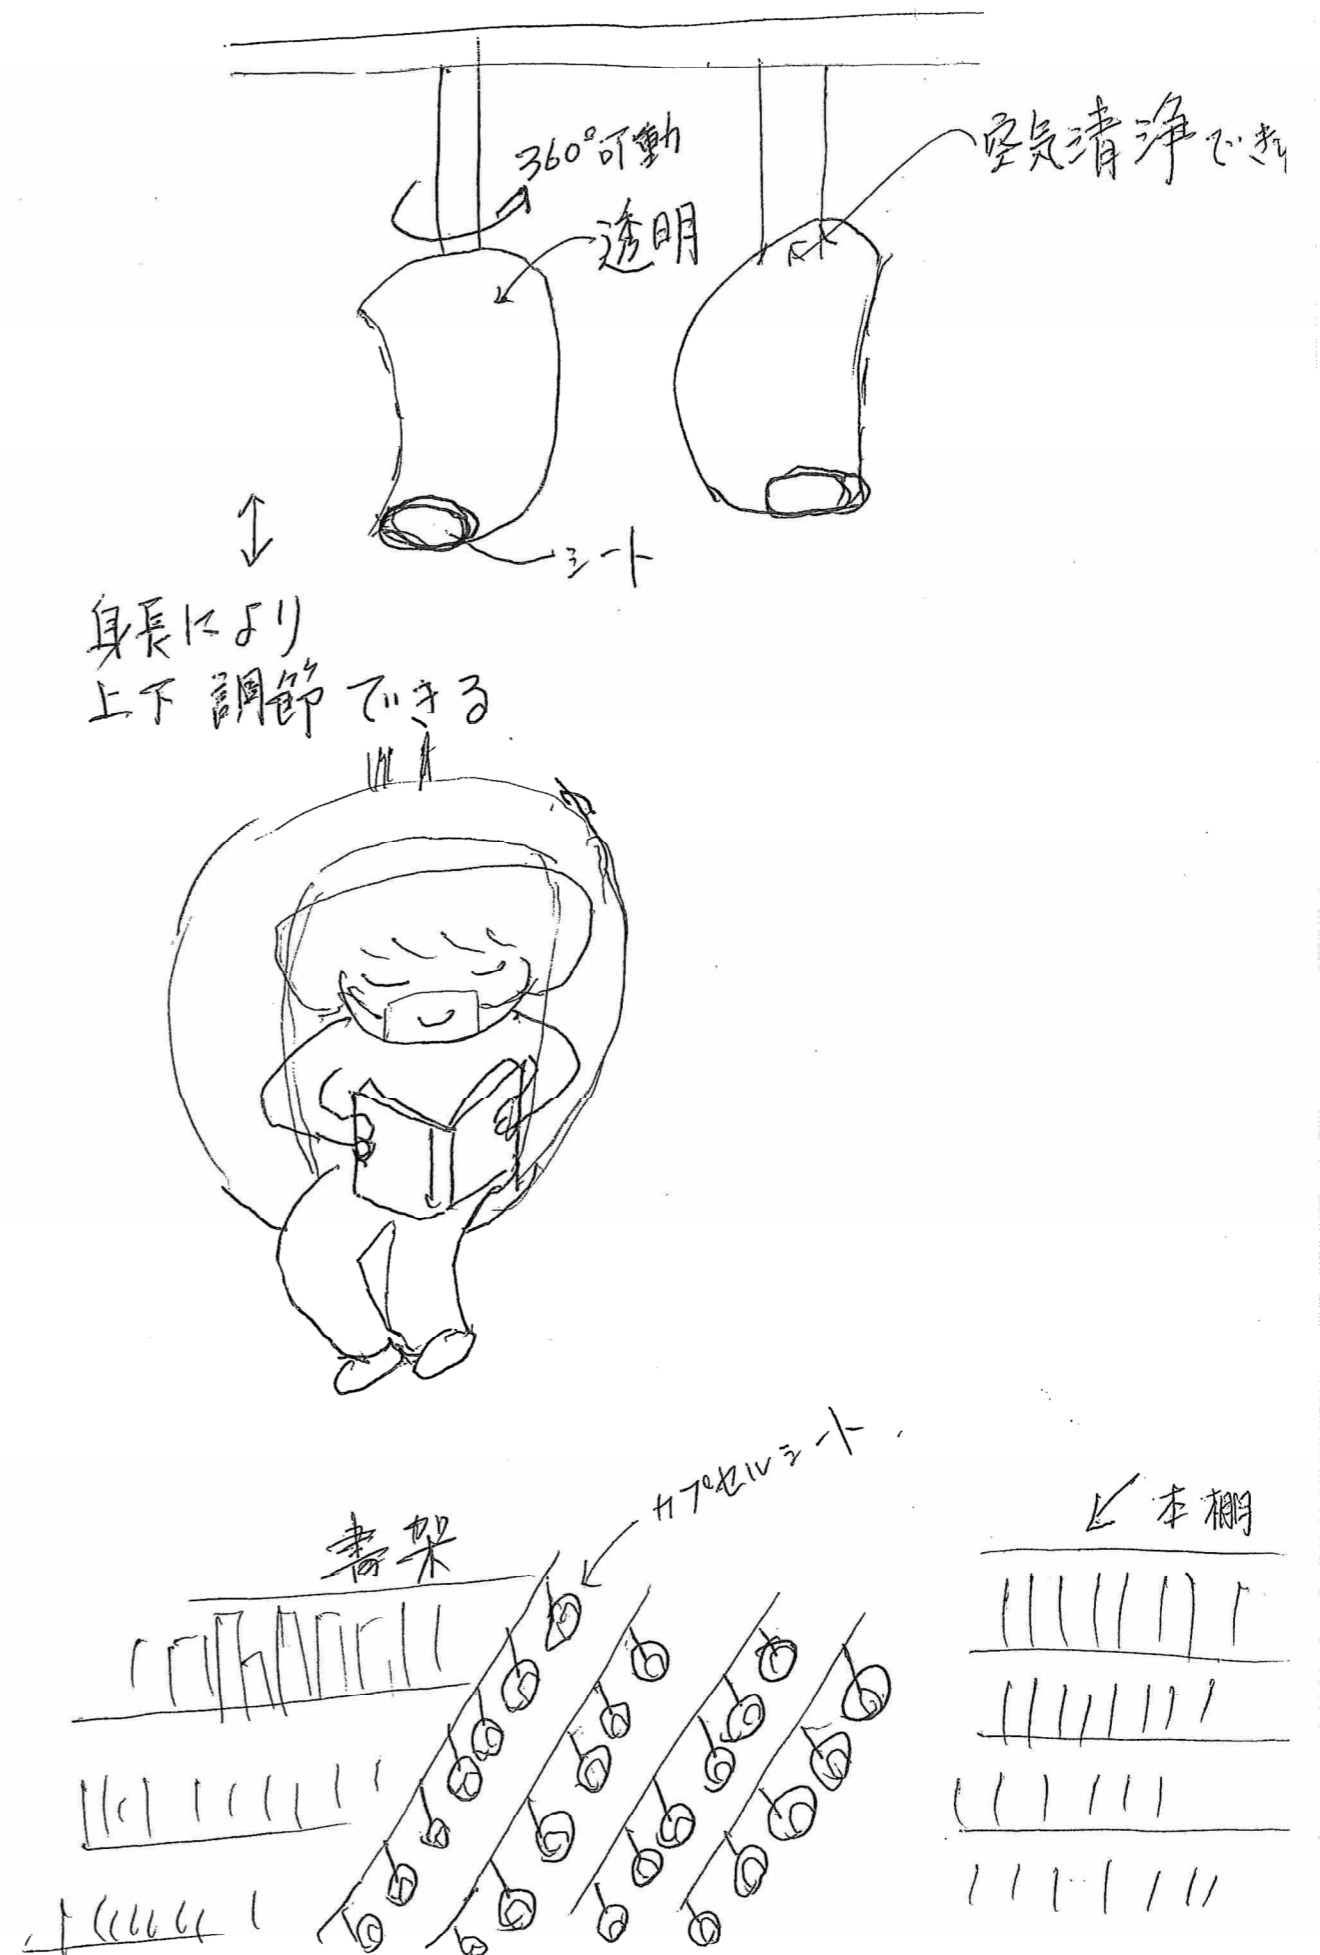 360°可動
空気清浄でき
透明
シート
身長により
上下調節できる
カプセルシート
書架
本棚